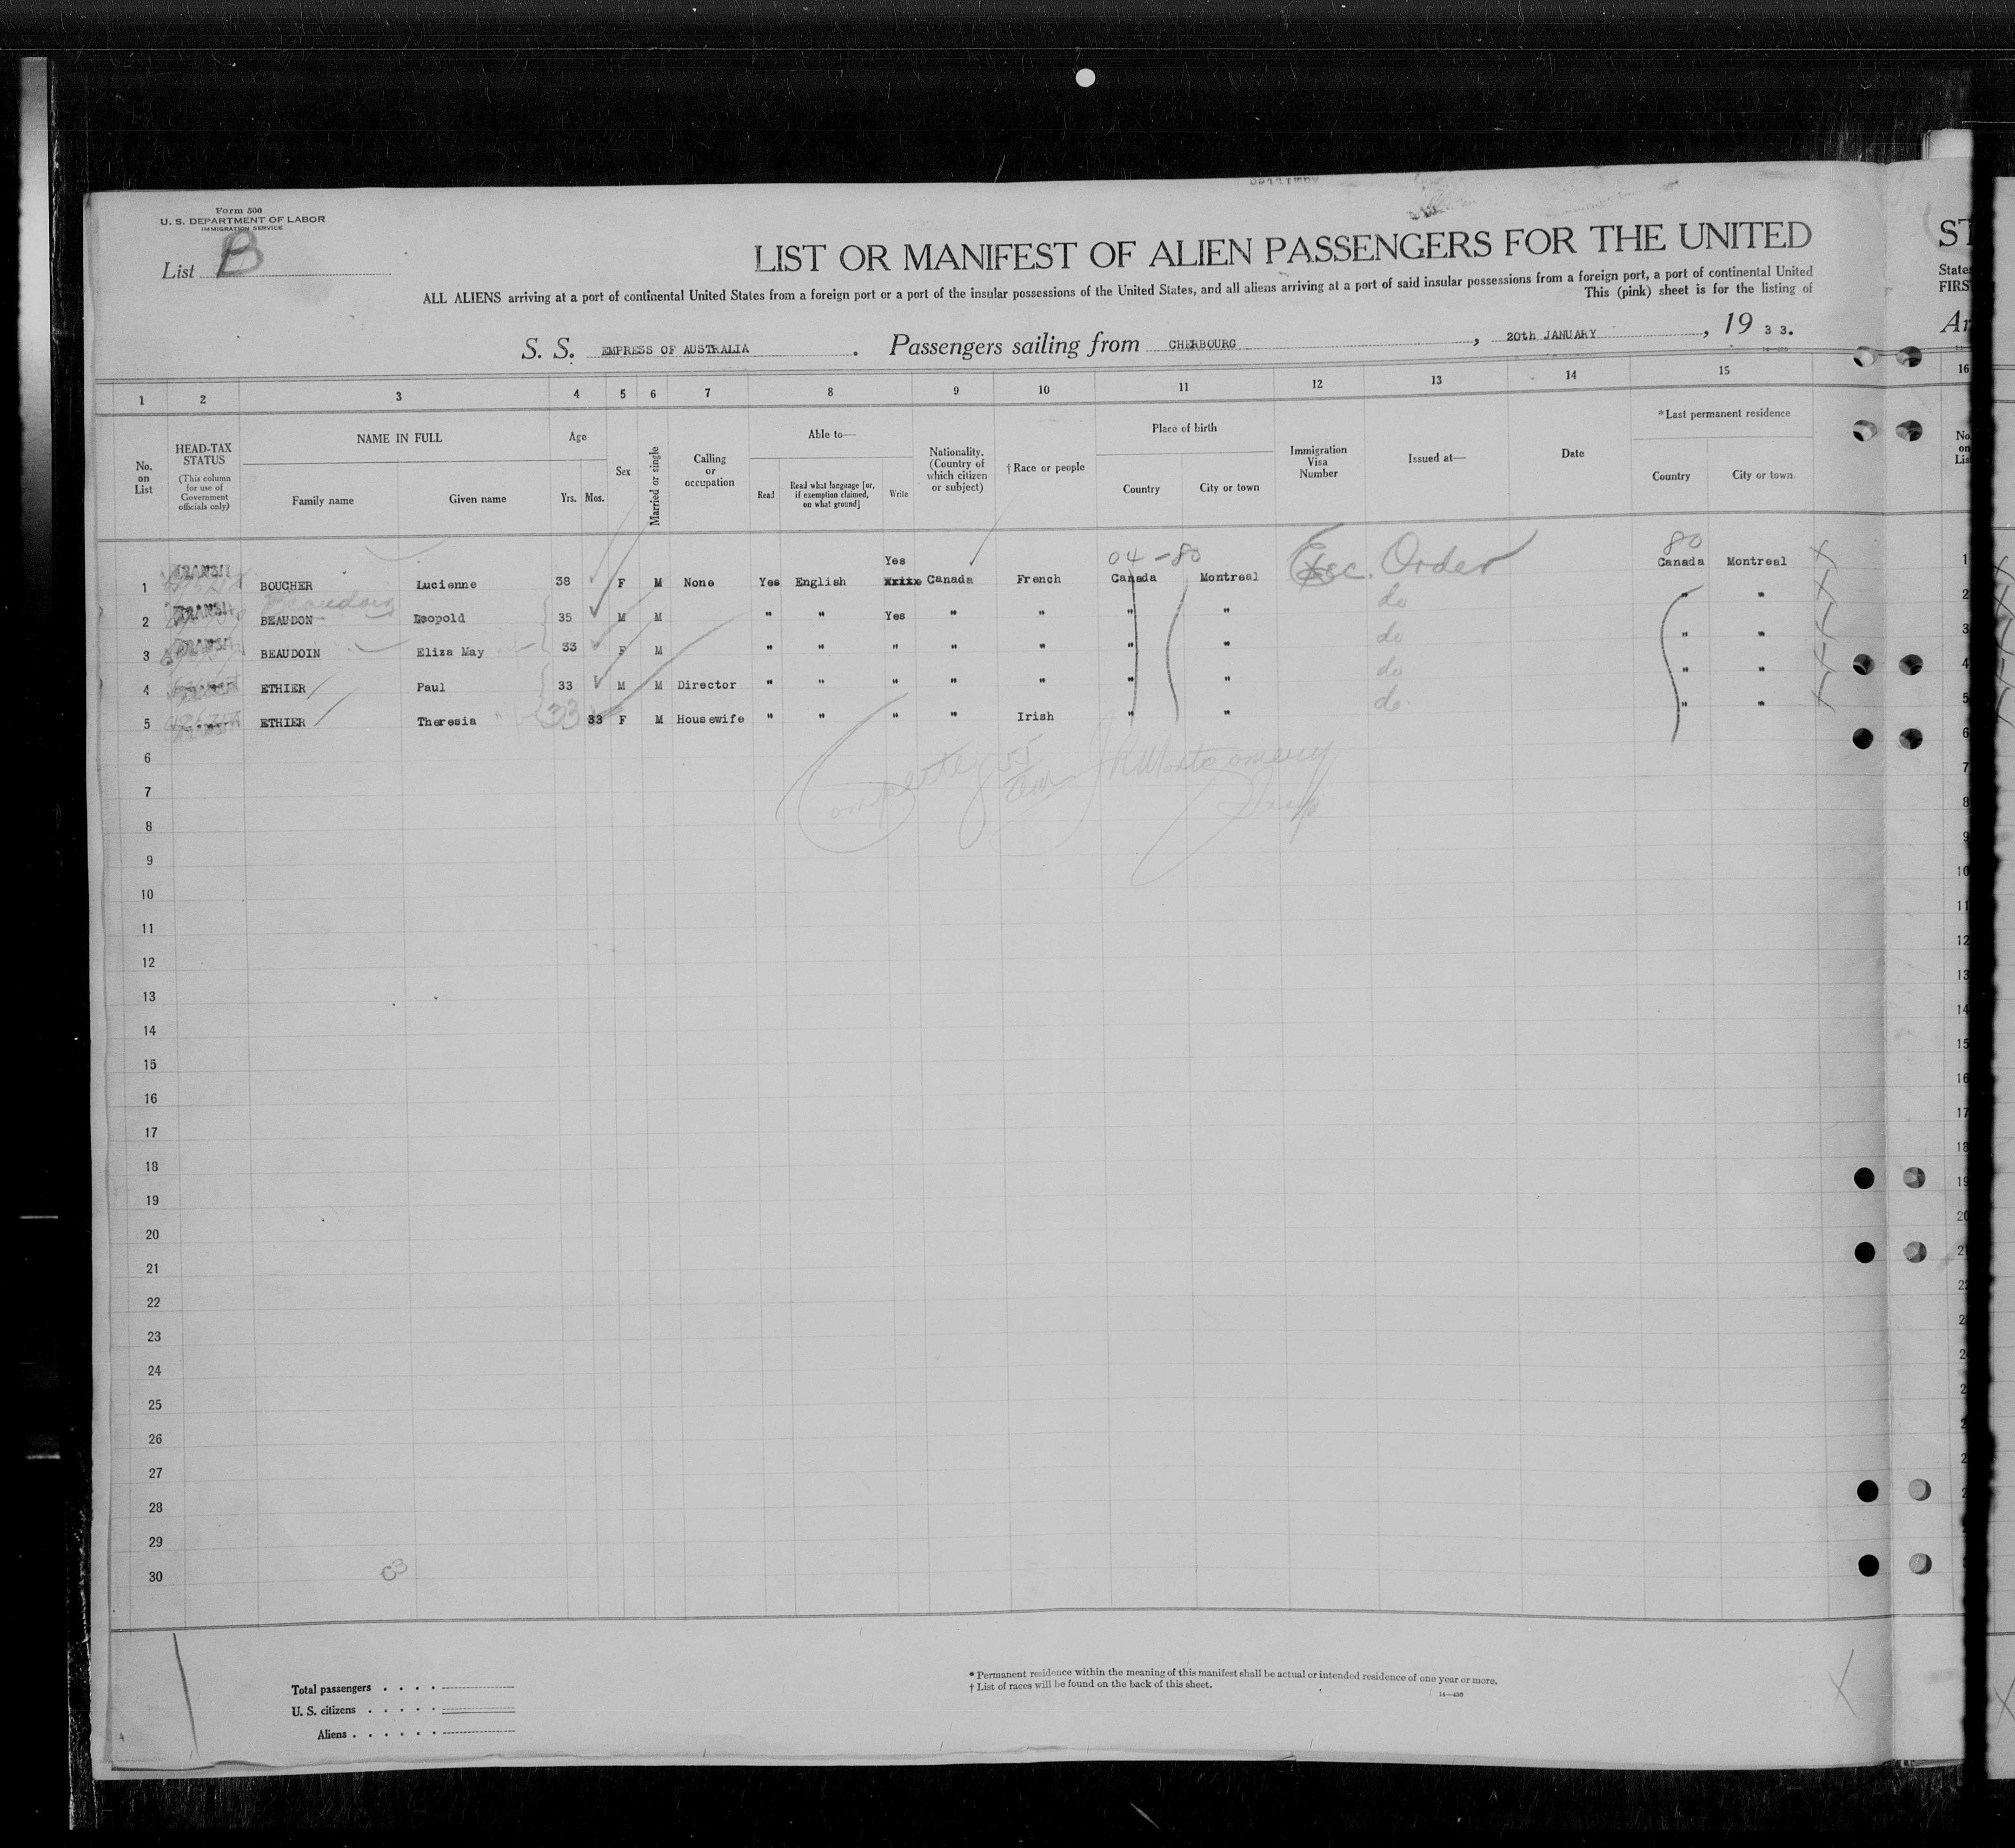 Form 500
U. S. DEPARTMENT OF LABOR
IMMIGRATION SERVICE
List B
LIST OR MANIFEST OF ALIEN PASSENGERS FOR THE UNITED
ST
ALL ALIENS arriving at a port of continental United States from a foreign port or a port of the insular possessions of the United States, and all aliens arriving at a port of said insular possessions from a foreign port, a port of continental United
States
This (pink) sheet is for the listing of
FIRS
S. S. EMPRESS OF AUSTRALIA . Passengers sailing from CHERBOURG , 20th JANUARY , 19 3 3.
Ar
1 2 3 4 5 6 7 8 9 10 11 12 13 14 15 16
No. on List
HEAD-TAX STATUS
(This column for use of Government officials only)
NAME IN FULL
Family name
Given name
Age
Yrs. Mos.
Sex
Married or single
Calling or occupation
Able to—
Read
Read what language [or, if exemption claimed, on what ground]
Write
Nationality. (Country of which citizen or subject)
† Race or people
Place of birth
Country
City or town
Immigration Visa Number
Issued at—
Date
* Last permanent residence
Country
City or town
No. on List
04 - 80
80
1 TRANSIT BOUCHER Lucienne 38 F M None Yes English Yes Canada French Canada Montreal Exec. Order Canada Montreal 1
Beaudoin
2 TRANSIT BEAUDON Leopold 35 M M " " Yes " " " " do " " 2
3 TRANSIT BEAUDOIN Eliza May 33 F M " " " " " " " do " " 3
4 TRANSIT ETHIER Paul 33 M M Director " " " " " " " do " " 4
5 TRANSIT ETHIER Theresia 33 33 F M Housewife " " " " Irish " " do " " 5
6
7
8
9
10
11
12
13
14
15
16
17
18
19
20
21
22
23
24
25
26
27
28
29
30
C3
Total passengers . . . .
U. S. citizens . . . . .
Aliens . . . . . .
* Permanent residence within the meaning of this manifest shall be actual or intended residence of one year or more.
† List of races will be found on the back of this sheet.
14—430